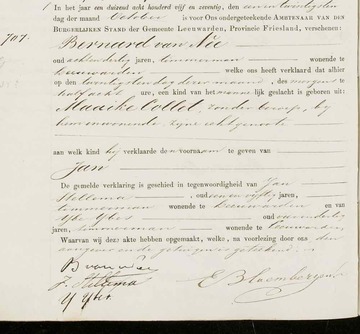 In het jaar een duizend acht honderd vijf en zeventig, den een en twintigsten
dag der maand October is voor Ons ondergeteekende AMBTENAAR VAN DEN
BURGERLIJKEN STAND der Gemeente LEEUWARDEN, Provincie FRIESLAND, verschenen:
707.
Bernard van Nie
oud achtendertig jaren, timmerman wonende te
Leeuwarden welke ons heeft verklaard dat alhier
op den twintigsten dezer maand, des morgens te
half acht ure, een kind van het mannelijk geslacht is geboren uit:
Maaike Collet, zonder beroep, bij
hem inwonende zijne echtgenoote
aan welk kind hij verklaarde den voornaam te geven van
Jan
De gemelde verklaring is geschied in tegenwoordigheid van Jan
Stellema, oud jaren,
timmerman wonende te Leeuwarden en van
IJke IJbes, oud
jaren, timmerman wonende te Leeuwarden.
Waarvan wij deze akte hebben opgemaakt, welke, na voorlezing door ons, den
aangever en de getuigen is geteekend.
B van Nie
J. Stellema
E Bloembergen